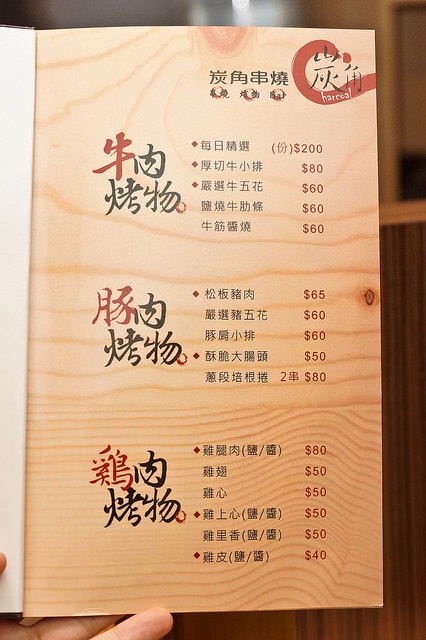 炭角串燒
串燒 烤物 Bar
炭角
harcoal
牛肉
烤物
◆每日精選 (份)$200
◆厚切牛小排 $80
◆嚴選牛五花 $60
鹽燒牛肋條 $60
牛筋醬燒 $60
豚肉
烤物
◆松板豬肉 $65
嚴選豬五花 $60
豚肩小排 $60
◆酥脆大腸頭 $50
蔥段培根捲 2串 $80
鷄肉
烤物
◆雞腿肉(鹽/醬) $80
雞翅 $50
雞心 $50
◆雞上心(鹽/醬) $50
雞里香(鹽/醬) $50
◆雞皮(鹽/醬) $40